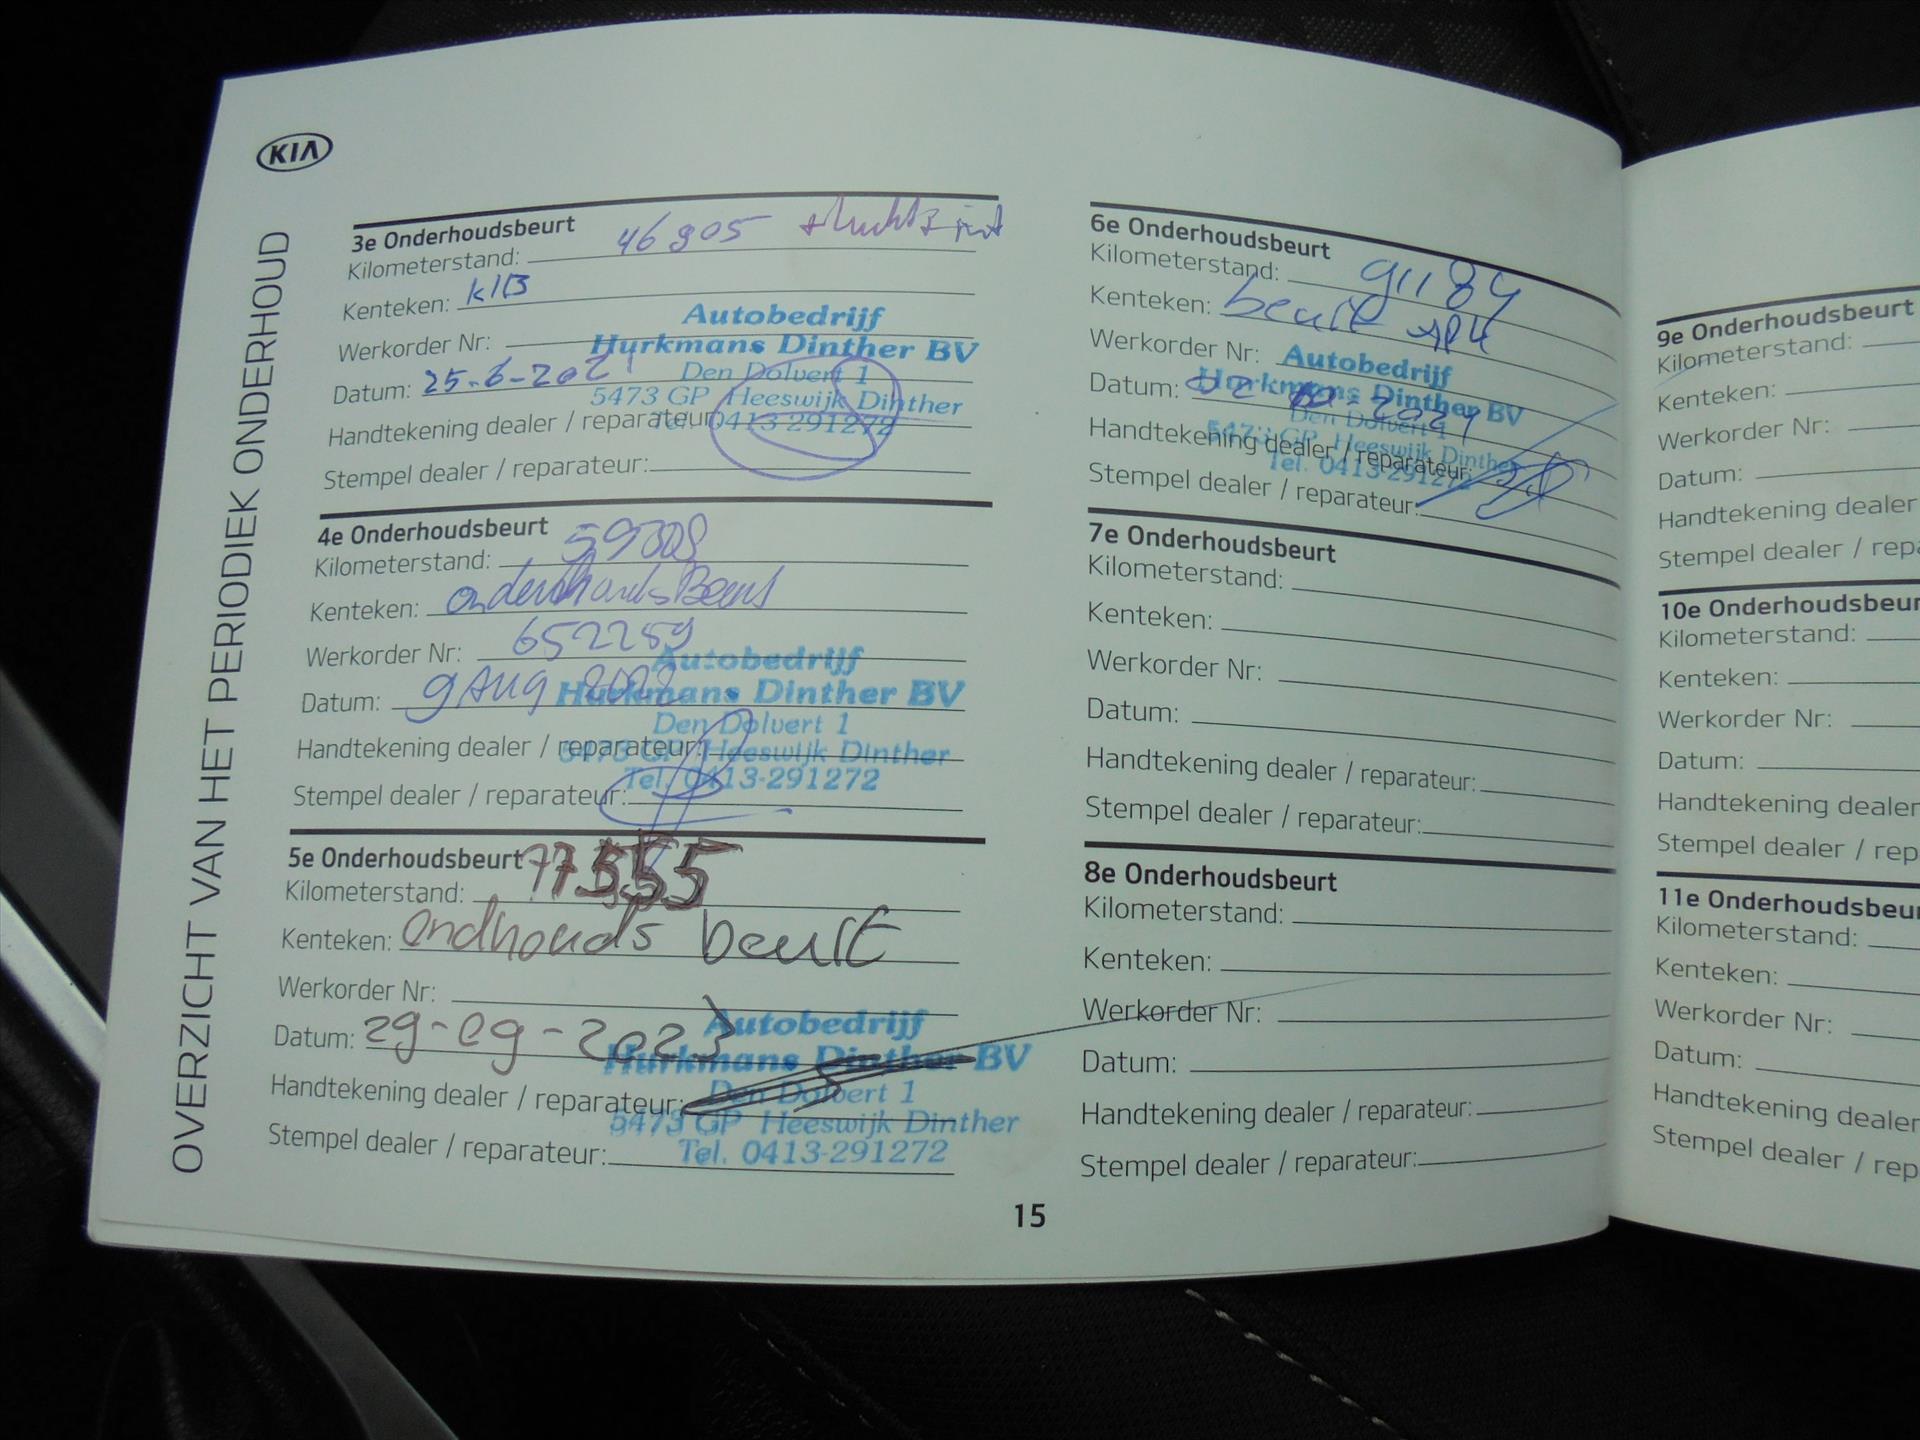 KIA
OVERZICHT VAN HET PERIODIEK ONDERHOUD
3e Onderhoudsbeurt
Kilometerstand: 46905
Kenteken: KlB
Werkorder Nr:
Datum: 25-6-2021
Handtekening dealer / reparateur:
Stempel dealer / reparateur:
Autobedrijf
Hurkmans Dinther BV
Den Dolvert 1
5473 GP Heeswijk Dinther
Tel. 0413-291272
4e Onderhoudsbeurt
Kilometerstand: 59308
Kenteken:
Werkorder Nr: 652259
Datum: 9 Aug 2022
Handtekening dealer / reparateur:
Stempel dealer / reparateur:
Autobedrijf
Hurkmans Dinther BV
Den Dolvert 1
5473 GP Heeswijk Dinther
Tel. 0413-291272
5e Onderhoudsbeurt
Kilometerstand: 77555
Kenteken: ondhouds beurt
Werkorder Nr:
Datum: 29-09-2023
Handtekening dealer / reparateur:
Stempel dealer / reparateur:
Autobedrijf
Hurkmans Dinther BV
Den Dolvert 1
5473 GP Heeswijk Dinther
Tel. 0413-291272
6e Onderhoudsbeurt
Kilometerstand: 91184
Kenteken: beurt
Werkorder Nr:
Datum: 2024
Handtekening dealer / reparateur:
Stempel dealer / reparateur:
Autobedrijf
Hurkmans Dinther BV
Den Dolvert 1
5473 GP Heeswijk Dinther
Tel. 0413-291272
7e Onderhoudsbeurt
Kilometerstand:
Kenteken:
Werkorder Nr:
Datum:
Handtekening dealer / reparateur:
Stempel dealer / reparateur:
8e Onderhoudsbeurt
Kilometerstand:
Kenteken:
Werkorder Nr:
Datum:
Handtekening dealer / reparateur:
Stempel dealer / reparateur:
15
9e Onderhoudsbeurt
Kilometerstand:
Kenteken:
Werkorder Nr:
Datum:
Handtekening dealer
Stempel dealer / repa
10e Onderhoudsbeur
Kilometerstand:
Kenteken:
Werkorder Nr:
Datum:
Handtekening dealer
Stempel dealer / rep
11e Onderhoudsbeu
Kilometerstand:
Kenteken:
Werkorder Nr:
Datum:
Handtekening dealer
Stempel dealer / rep